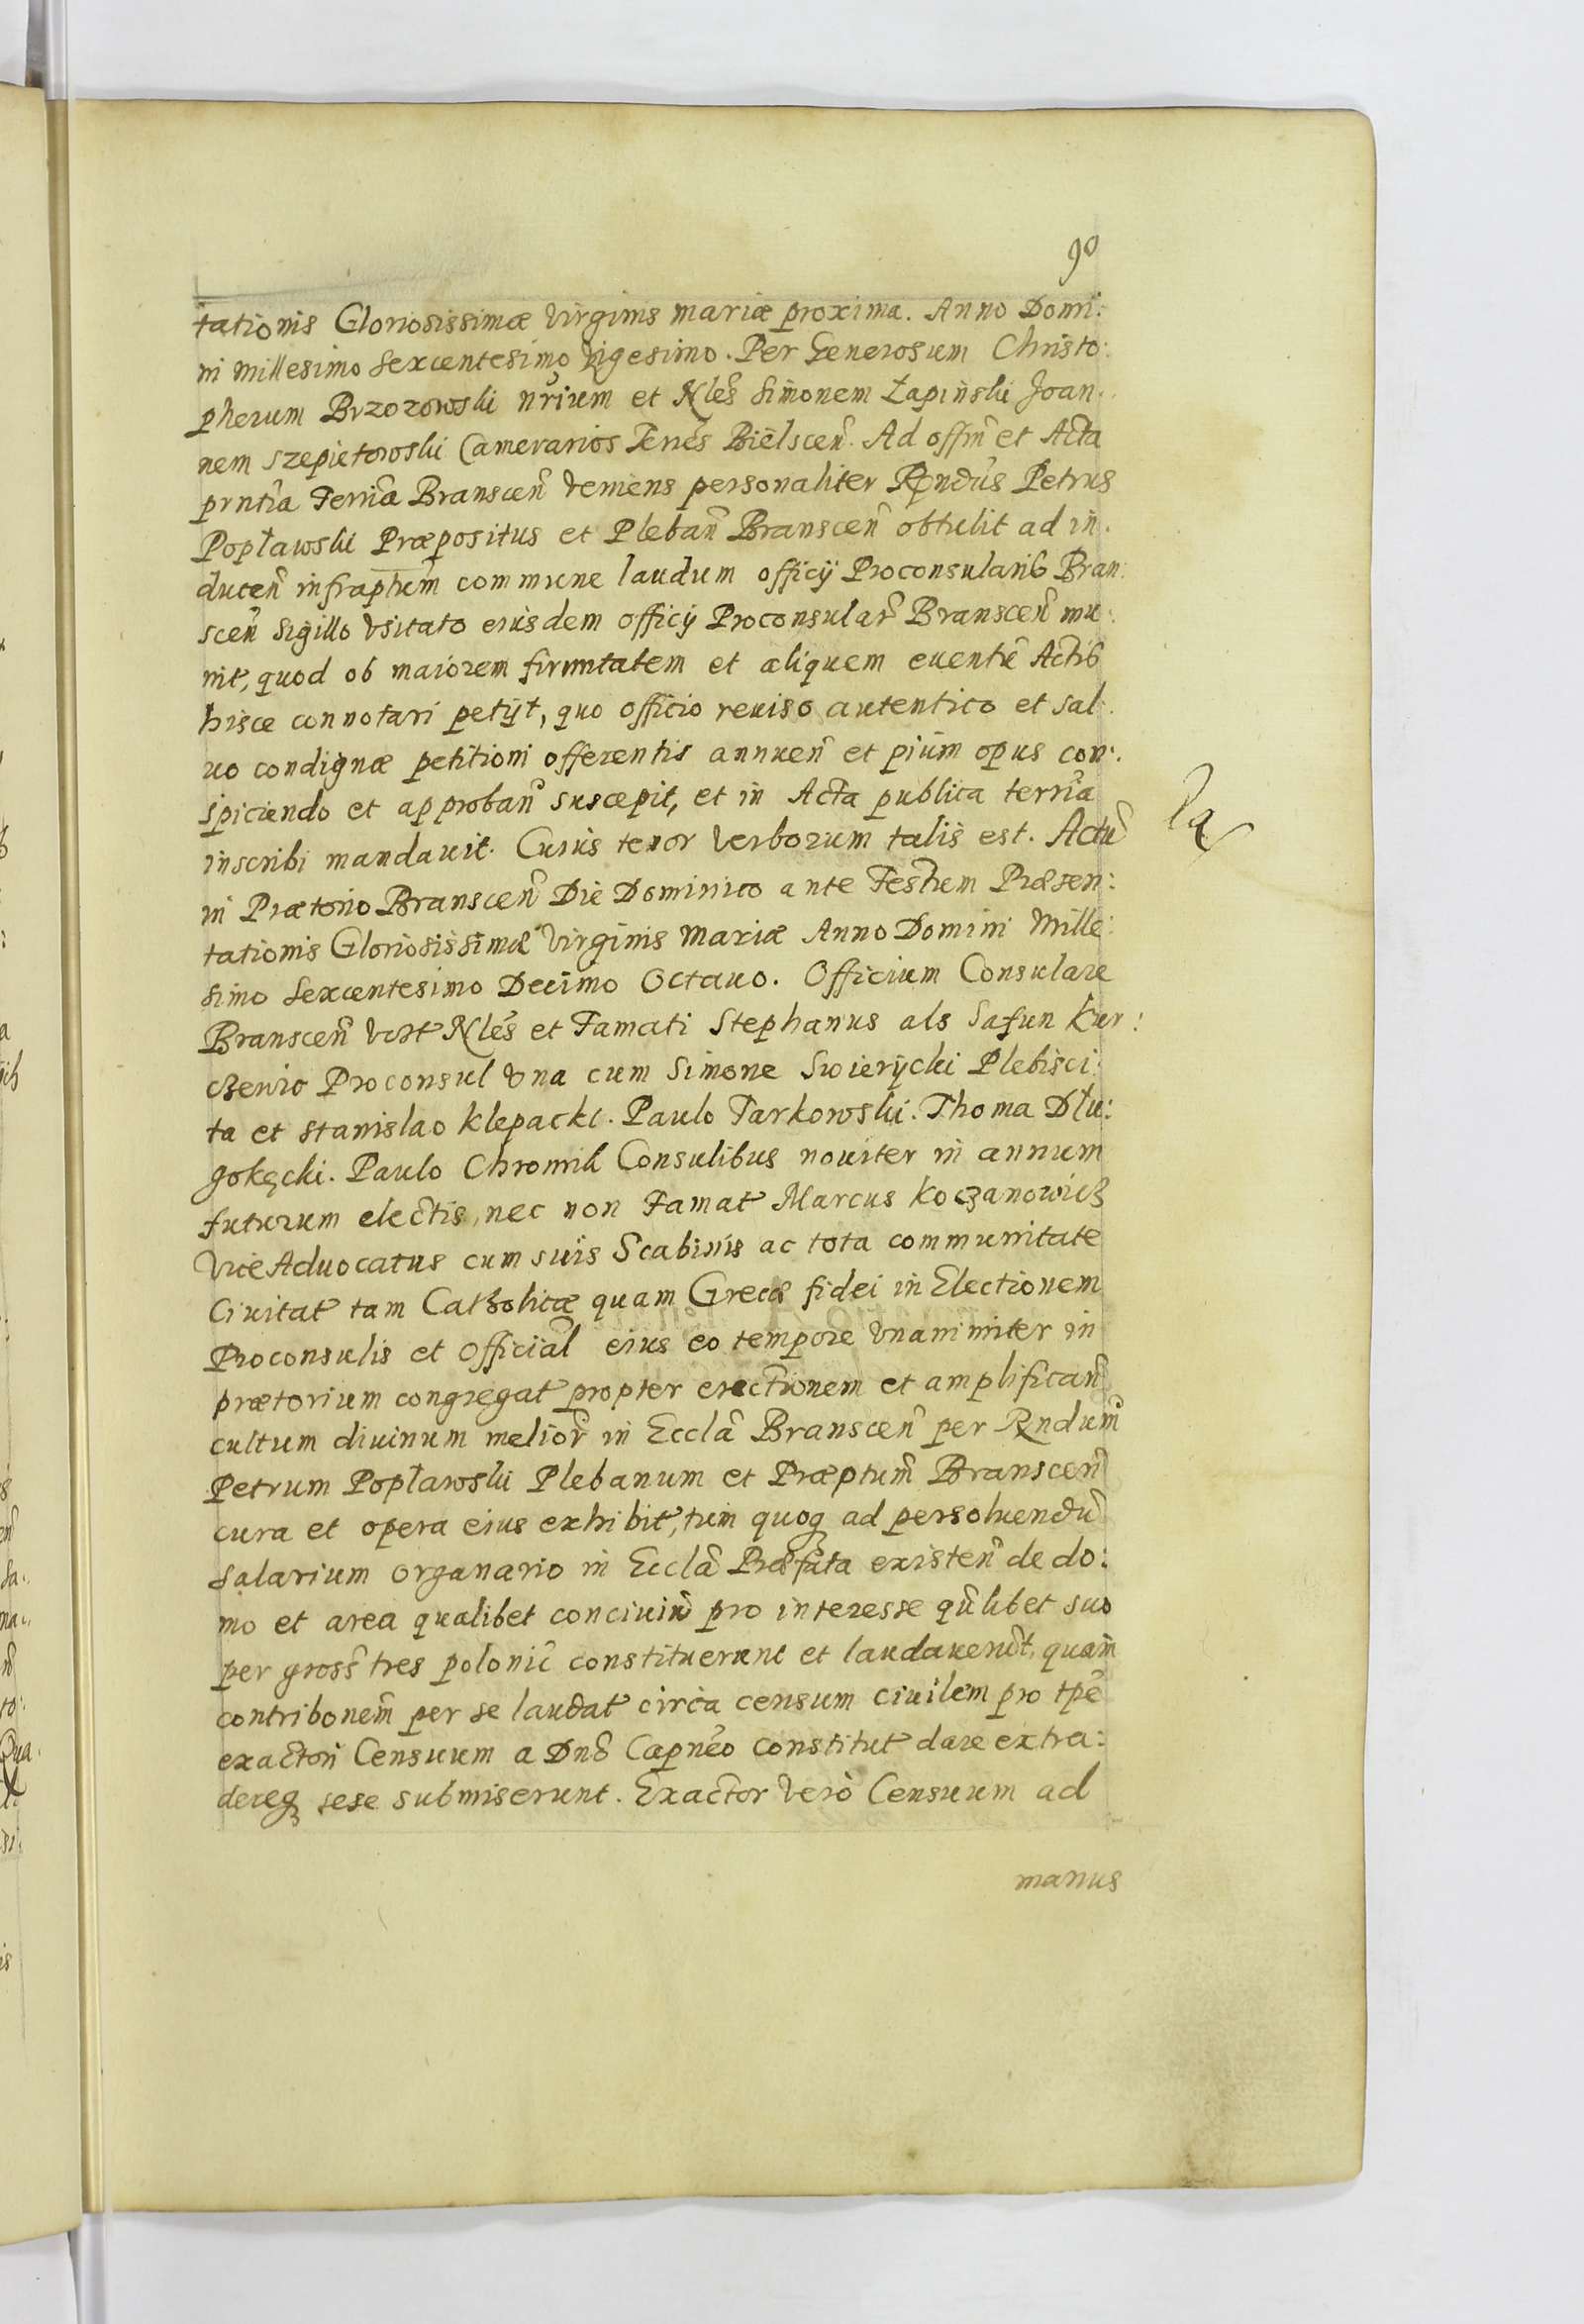 90
tationis Gloriosissimæ Virginis Mariæ proxima. Anno Domi:
ni Millesimo Sexcentesimo Vigesimo. Per Generosum Christo:
pherum Brzozowski nrium et Nles Simonem Łapinski Joan:
nem Szepietowski Camerarios Terres Bielscen. Ad offm et Acta
prntia Terria Branscen veniens personaliter Rndus Petrus
Popławski Præpositus et Pleban Branscen obtulit ad in:
ducen infraptum commune laudum officij Proconsularis Bran:
scen Sigillo Vsitato eiusdem officij Proconsular Branscen mu:
nit, quod ob maiorem firmitatem et aliquem euentũ Actis
hisce connotari petijt, quo officio reuiso autentico et sal:
uo condignæ petitioni offerentis annuen et pium opus con:
spiciendo et approban suscepit, et in Acta publica terria
inscribi mandauit. Cuius tenor Verborum talis est. Actũ
in Prætorio Branscen Die Dominico ante Festum Præsen:
tationis Gloriosissimæ Virginis Mariæ Anno Domini Mille:
simo Sexcentesimo Decimo Octauo. Officium Consulare
Branscen vdt Nles et Famati Stephanus als Safun Kur:
czewic Proconsul Vna cum Simone Swierycki Plebisci:
ta et Stanislao Klepacki. Paulo Tarkowski. Thoma Dłu:
gołęcki. Paulo Chromik Consulibus nouiter in annum
futurum electis, nec non Famat Marcus Koczanowicz
ViceAduocatus cum suis Scabinis ac tota communitate
Ciuitat tam Catholicæ quam Grecæ fidei in Electionem
Proconsulis et Official eius eo tempore Vnanimiter in
prætorium congregat propter erectionem et amplifican
cultum diuinum melior in Eccla Branscen per Rndum
Petrum Popławski Plebanum et Præptum Branscen
cura et opera eius exhibit, tum quoq ad persoluendũ
Salarium organario in Eccla Præfata existen de do:
mo et area qualibet conciuiũ pro interesse qũlibet suo
per gross tres polonic constituerunt et laudauerũt, quam
contribonem per se laudat circa censum ciuilem pro tpe
exactori Censuum a Dno Capneo constitut dare extra:
dereq sese submiserunt. Exactor Verò Censuum ad
manus